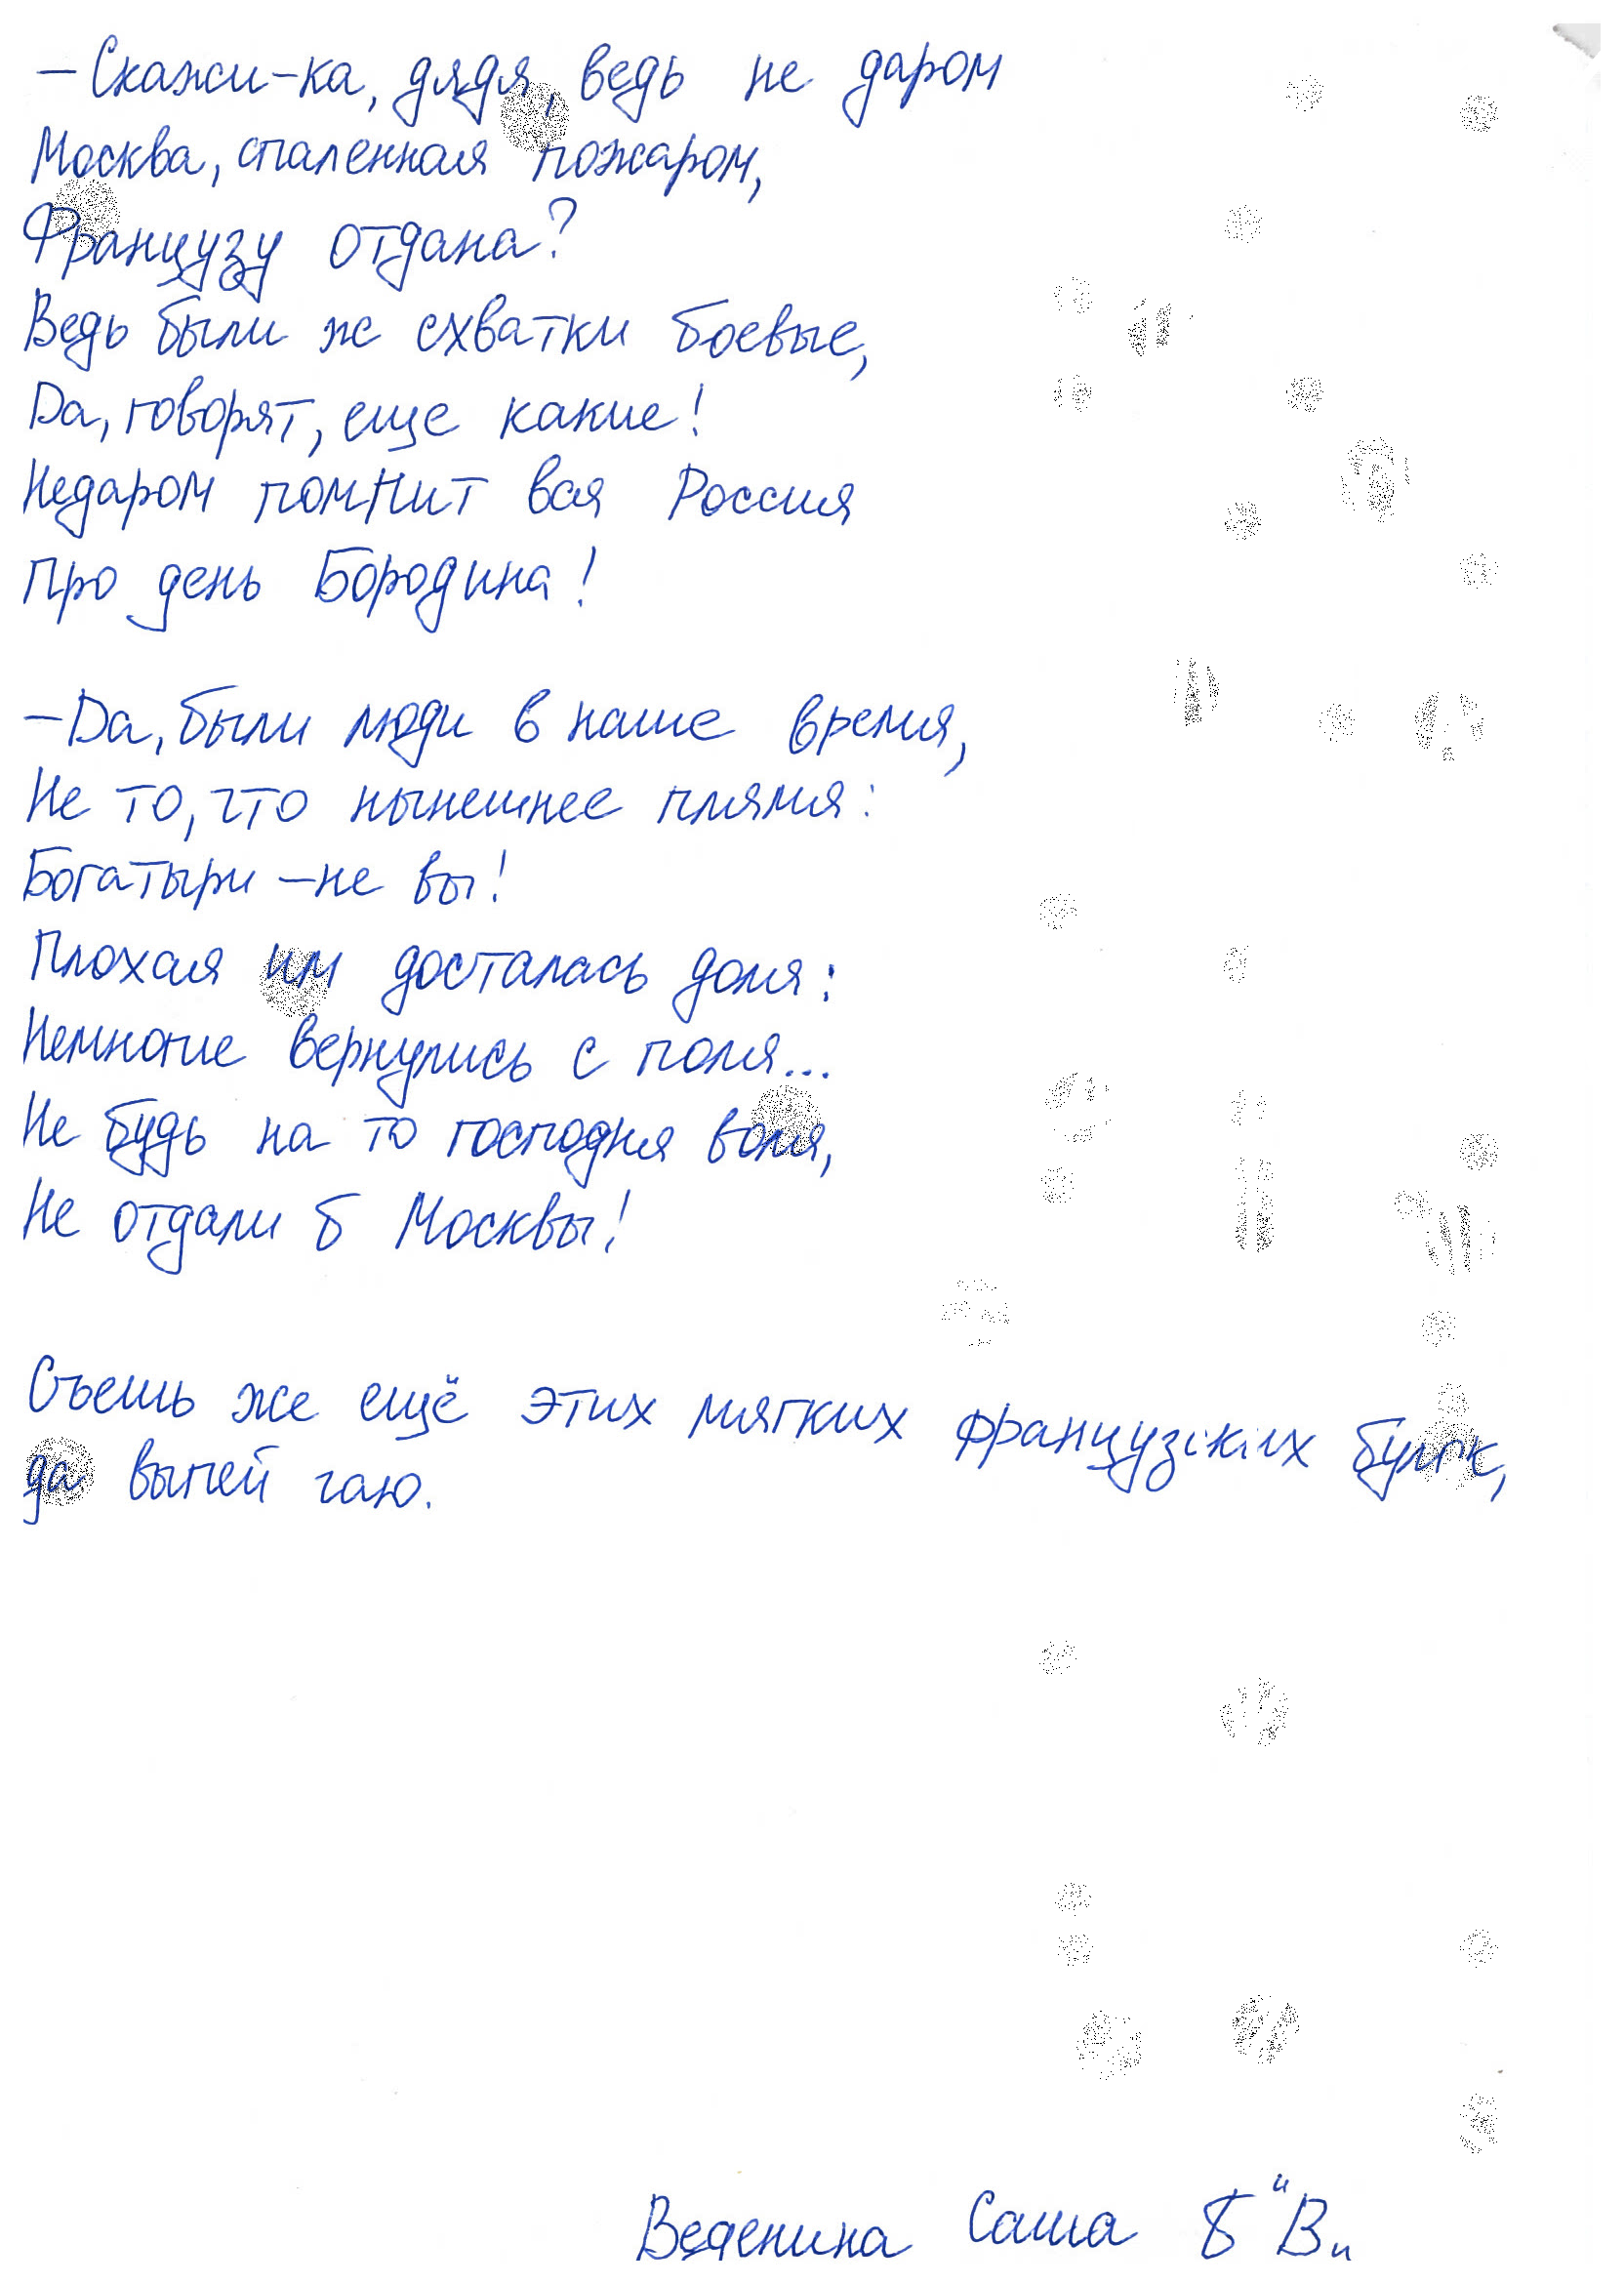 — Скажи-ка, дядя, ведь не даром
Москва, спаленная пожаром,
Французу отдана?
Ведь были ж схватки боевые,
Да, говорят, еще какие!
Недаром помнит вся Россия
Про день Бородина!
— Да, были люди в наше время,
Не то, что нынешнее племя:
Богатыри — не вы!
Плохая им досталась доля:
Немногие вернулись с поля...
Не будь на то господня воля,
Не отдали б Москвы!
Съешь же ещё этих мягких французских булок,
да выпей чаю.
Веденина Саша "В"